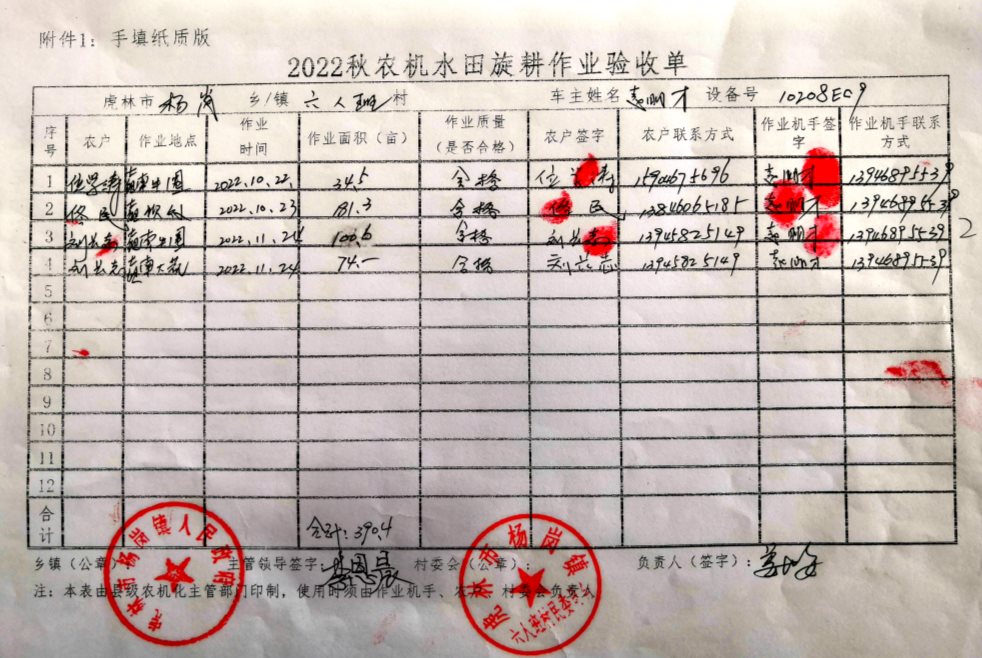 附件1：手填纸质版
2022秋农机水田旋耕作业验收单
虎林市 杨岗 乡/镇 六人班 村 车主姓名 赵明才 设备号 10208EC9
序号 农户 作业地点 作业时间 作业面积（亩） 作业质量（是否合格） 农户签字 农户联系方式 作业机手签字 作业机手联系方式
1 2022.10.22 34.5 合格 15904675696 赵明才 13946895539
2 佟民 2022.10.23 181.3 合格 佟民 13846065185 赵明才 13946895539
3 刘长志 2022.11.24 100.6 合格 刘长志 13945825149 赵明才 13946895539 2
4 刘长志 2022.11.24 74.- 合格 刘长志 13945825149 赵明才 13946895539
5
6
7
8
9
10
11
12
合计 合计:390.4
乡镇（公章） 主管领导签字： 村委会（公章）： 负责人（签字）：
注：本表由县级农机化主管部门印制，使用时须由作业机手、农户、村委会负责人
虎林市杨岗镇人民政府
虎林市杨岗镇
六人班村民委员会